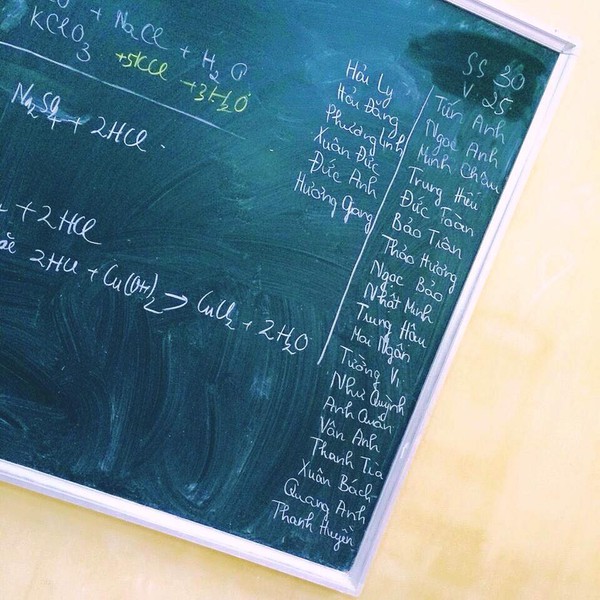 + NaCl + H₂O
KClO₃ +5KCl +3H₂O
Na₂SO₄ + 2HCl
+ 2HCl
2HCl + Cu(OH)₂ → CuCl₂ + 2H₂O
Hải Ly
Hải Đăng
Phương Linh
Xuân Đức
Đức Anh
Hương Giang
SS 30
V 25
Tấn Anh
Ngọc Anh
Minh Châu
Trung Hiếu
Đức Toàn
Bảo Trân
Thảo Hương
Ngọc Bảo
Nhật Minh
Trung Hậu
Mai Ngân
Tường Vi
Như Quỳnh
Anh Quân
Vân Anh
Thanh
Xuân Bách
Quang Anh
Thanh Huyền